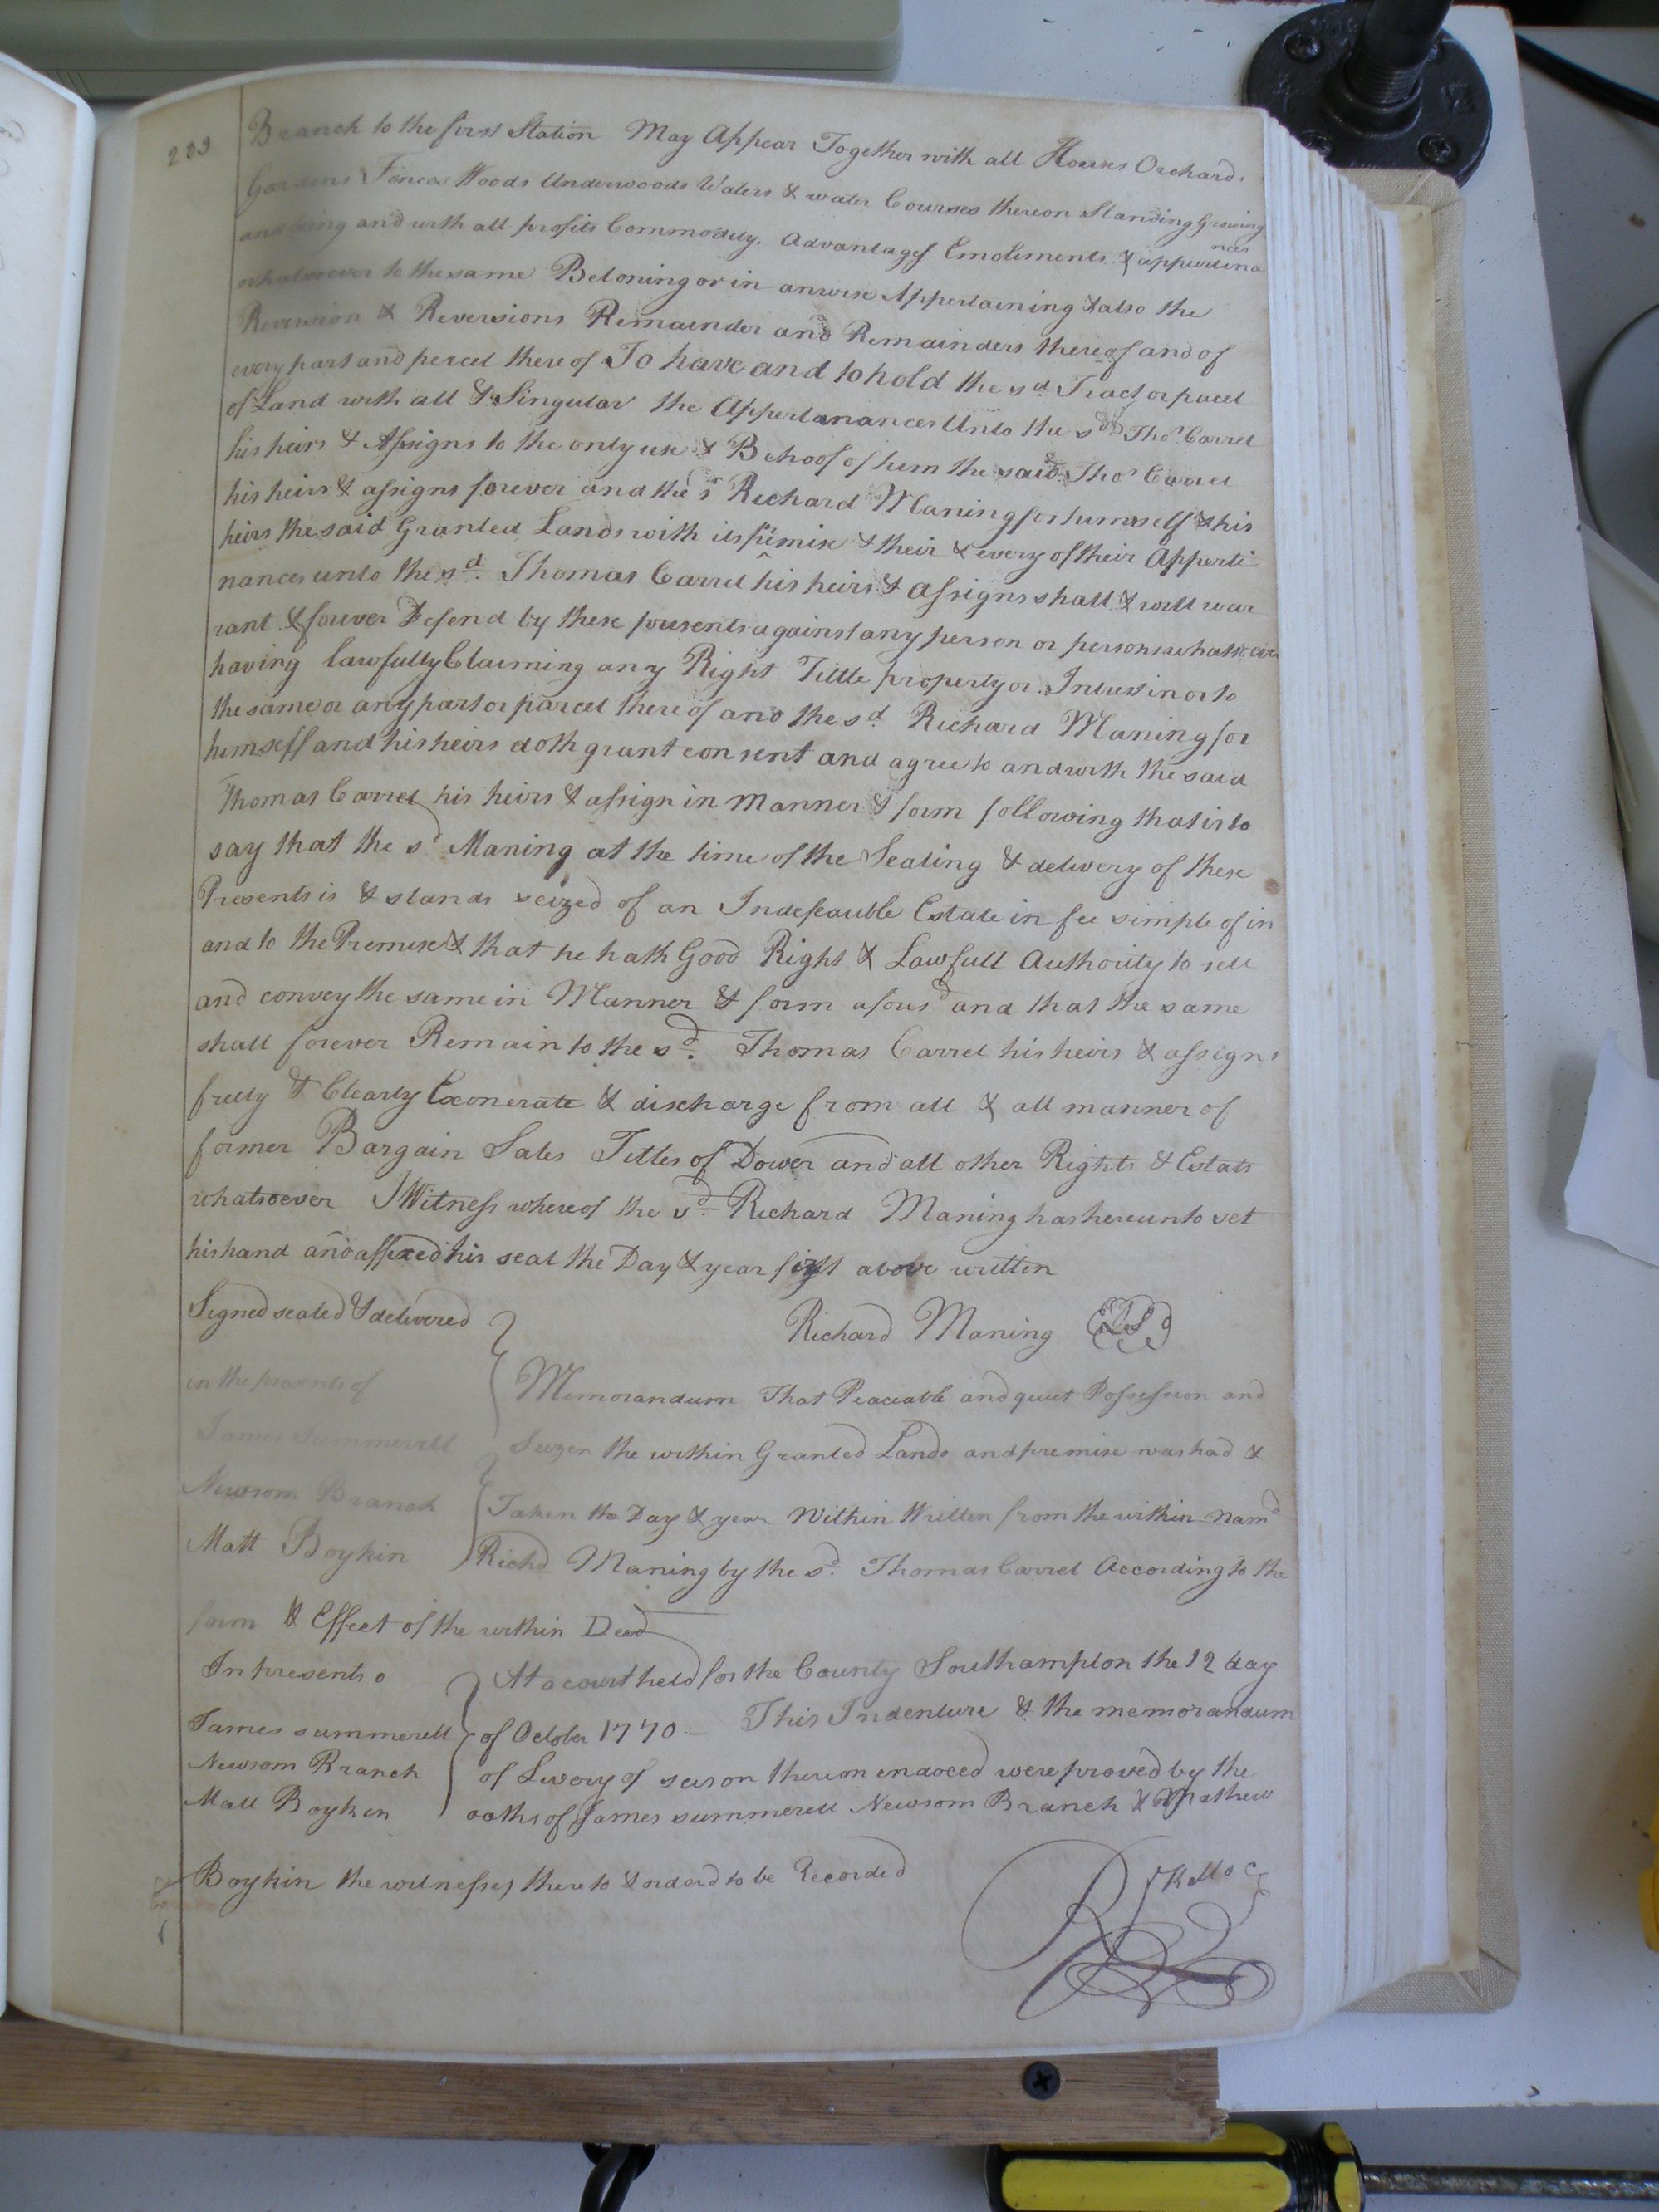 203
Branch to the first Station May Appear Together with all Houses Orchards
Gardens Fences Woods Underwoods Waters & water Courses thereon Standing Growing
and being and with all profits Commodity, Advantages Emolements & appurtena
nces
whatsoever to the same Beloning or in anwise Appertaining & also the
Reversion & Reversions Remainder and Remainders thereof and of
every part and percel there of To have and to hold the sd. Tract or pacel
of Land with all & Singular the Appertanances Unto the sd. Thos. Carrel
his heirs & Assigns to the only use & Behoof of him the said Thos Carrel
his heirs & assigns forever and the sd Richard Maning for himself & his
heirs the said Granted Lands with its premise & their & every of their Apperti
nances unto the sd. Thomas Carrel his heirs & assigns shall & will war
rant & forever Defend by these presents against any person or persons whatsoever
having lawfully Claiming any Right Tittle property or Intrest in or to
the same or any part or parcel there of and the sd. Richard Maning for
himself and his heirs doth grant consent and agree to and with the said
Thomas Carrel his heirs & assign in Manner & form following that is to
say that the sd Maning at the time of the Sealing & delivery of these
Presents is & stands seized of an Indefeauble Estate in fee simple of in
and to the Premise & that he hath Good Right & Lawfull Authority to sell
and convey the same in Manner & form afousd and that the same
shall forever Remain to the sd. Thomas Carrel his heirs & assigns
freely & Clearly Exonerate & discharge from all & all manner of
former Bargain Sales Titles of Dower and all other Rights & Estats
whatsoever I Witness where of the sd. Richard Maning has hereunto set
his hand and affixed his seal the Day & year first above written
Signed sealed & delivered
Richard Maning LS
in the presents of
Memorandum That Peaceable and quiet Possession and
James Summerell
Seizen the within Granted Lands and premise was had &
Newsom Branch
Taken the Day & year Within Written from the within Namd
Matt Boykin
Richd Maning by the sd. Thomas Carrel According to the
form & Effect of the within Deed
In presents o
At a court held for the County Southampton the 12 day
James summerell
of October 1770 This Indenture & the memorandum
Newsom Branch
of Livery of seison thereon endoced were proved by the
Matt Boykin
oaths of James summerell Newsom Branch & Mathew
Boykin the witnesses there to & orderd to be Recorded
R Kello C